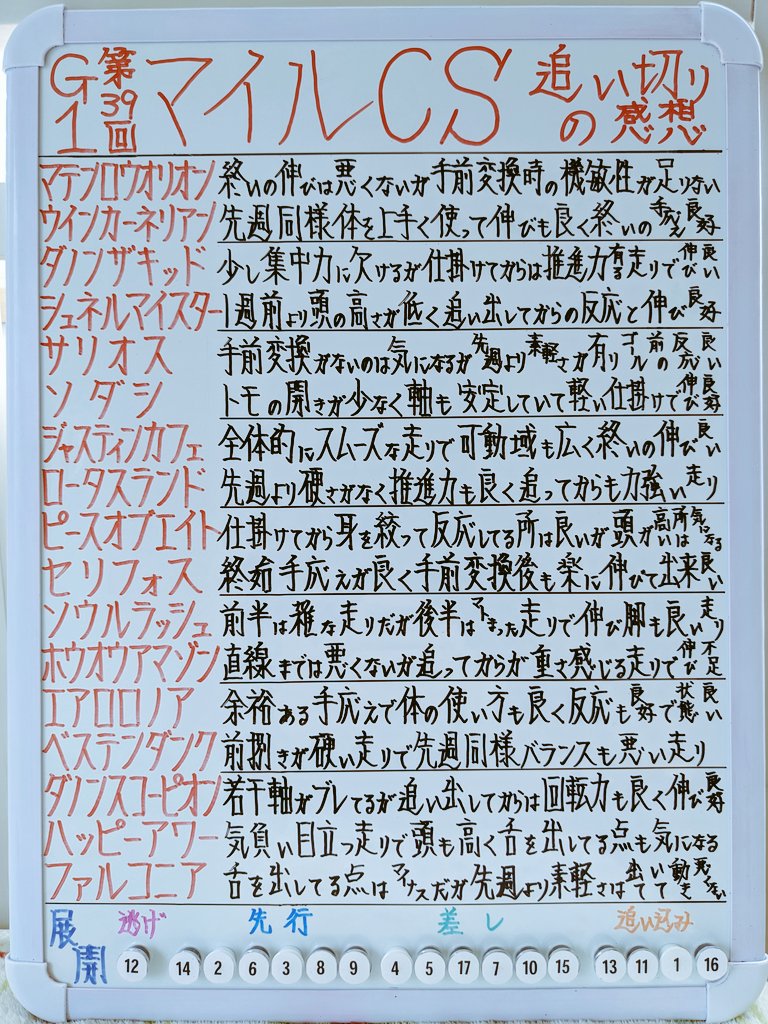 G1 第39回 マイルCS 追い切りの感想
マテンロウオリオン 終いの伸びは悪くないが手前変換時の機敏性が足りない
ウインカーネリアン 先週同様体を上手く使って伸びも良く終いの手応え良好
ダノンザキッド 少し集中力に欠けるが仕掛けてからは推進力有る走りで伸び良い
シュネルマイスター 1週前より頭の高さが低く追い出してからの反応と伸び良好
サリオス 手前変換がないのは気になるが先週より素軽さが有りゴール前の反応良い
ソダシ トモの開きが少なく軸も安定していて軽い仕掛けで伸び良好
ジャスティンカフェ 全体的にスムーズな走りで可動域も広く終いの伸び良い
ロータスランド 先週より硬さがなく推進力も良く追ってからも力強い走り
ピースオブエイト 仕掛けてから身を絞って反応してる所は良いが頭が高い所は気になる
セリフォス 終始手応えが良く手前変換後も楽に伸びて出来良い
ソウルラッシュ 前半は雑な走りだが後半はまとまった走りで伸び脚も良い走り
ホウオウアマゾン 直線までは悪くないが追ってからが重さ感じる走りで伸び不足
エアロロノア 余裕ある手応えで体の使い方も良く反応も良好で状態良い
ベステンダンク 前捌きが硬い走りで先週同様バランスも悪い走り
ダノンスコーピオン 若干軸がブレてるが追い出してからは回転力も良く伸び良好
ハッピーアワー 気負い目立つ走りで頭も高く舌を出してる点も気になる
ファルコニア 舌を出してる点はマイナスだが先週より素軽さは出ていて動き
展開 逃げ 先行 差し 追い込み
12 14 2 6 3 8 9 4 5 17 7 10 15 13 11 1 16